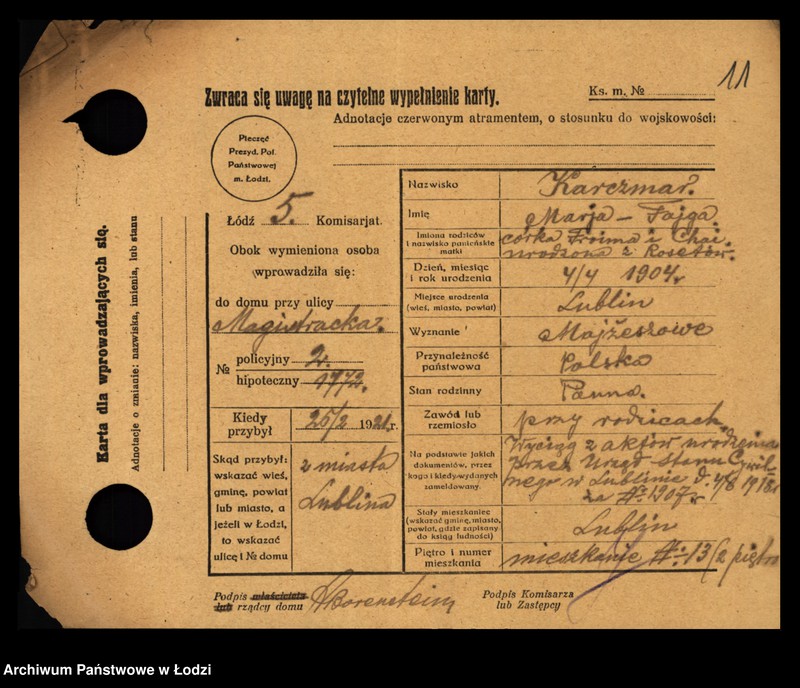 11
Zwraca się uwagę na czytelne wypełnienie karty.
Ks. m. №
Adnotacje czerwonym atramentem, o stosunku do wojskowości:
Pieczęć
Prezyd. Pol.
Państwowej
m. Łodzi.
Karta dla wprowadzających się.
Adnotacje o zmianie: nazwiska, imienia, lub stanu
Łódź 5. Komisarjat.
Obok wymieniona osoba
wprowadziła się:
do domu przy ulicy
Magistracka.
№ policyjny 2.
hipoteczny 1772.
Kiedy przybył 25/2 1921 r.
Skąd przybył:
wskazać wieś,
gminę, powiat
lub miasto, a
jeżeli w Łodzi,
to wskazać
ulicę i № domu
z miasta
Lublina
Nazwisko Karczmar.
Imię Marja - Fajga.
Imiona rodziców
i nazwisko panieńskie
matki
córka Froima i Chai.
urodzona z Rosetów.
Dzień, miesiąc
i rok urodzenia
4/4 1904 r
Miejsce urodzenia
(wieś, miasto, powiat)
Lublin
Wyznanie Mojżeszowe
Przynależność
państwowa
Polska
Stan rodzinny Panna.
Zawód lub
rzemiosło
przy rodzicach.
Na podstawie jakich
dokumentów, przez
kogo i kiedy wydanych
zameldowany.
Wyciąg z aktów urodzenia
przez Urząd Stanu Cywil-
nego w Lublinie d. 4/8 1918 r
za № 1907 r
Stały mieszkaniec
(wskazać gminę, miasto,
powiat, gdzie zapisany
do ksiąg ludności)
Lublin
Piętro i numer
mieszkania
mieszkanie №: 13/2 piętro
Podpis właściciela
lub rządcy domu
Podpis Komisarza
lub Zastępcy
Archiwum Państwowe w Łodzi